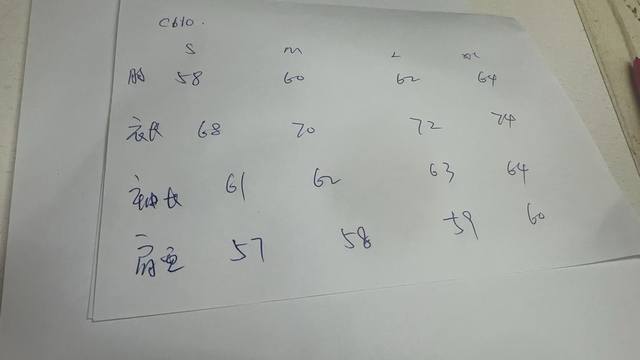 C610.
S M L XL
胸 58 60 62 64
衣长 68 70 72 74
袖长 61 62 63 64
肩宽 57 58 59 60